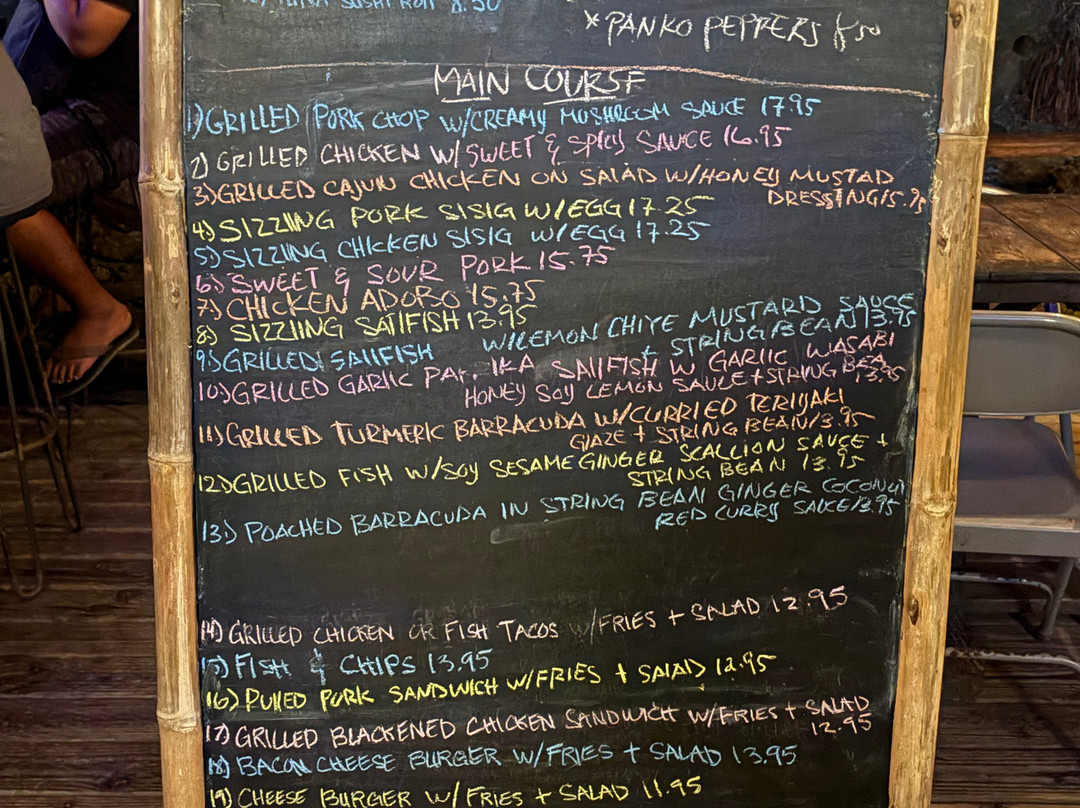 TUNA SUSHI ROLL 8.50
* PANKO PEPPERS 8.50
MAIN COURSE
1) GRILLED PORK CHOP W/CREAMY MUSHROOM SAUCE 17.95
2) GRILLED CHICKEN W/ SWEET & SPICY SAUCE 16.95
3) GRILLED CAJUN CHICKEN ON SALAD W/HONEY MUSTAD
DRESSING 15.95
4) SIZZLING PORK SISIG W/EGG 17.25
5) SIZZLING CHICKEN SISIG W/EGG 17.25
6) SWEET & SOUR PORK 15.75
7) CHICKEN ADOBO 15.75
8) SIZZLING SAILFISH 13.95
9) GRILLED SAILFISH W/LEMON CHIVE MUSTARD SAUCE
& STRING BEAN 13.95
10) GRILLED GARLIC SAILFISH W GARLIC WASABI
HONEY SOY LEMON SAUCE + STRING BEA 13.95
11) GRILLED TURMERIC BARRACUDA W/CURRIED TERIYAKI
GLAZE + STRING BEAN 13.95
12) GRILLED FISH W/SOY SESAME GINGER SCALLION SAUCE +
STRING BEAN 13.95
13) POACHED BARRACUDA IN STRING BEAN GINGER COCONUT
RED CURRY SAUCE 13.95
14) GRILLED CHICKEN OR FISH TACOS W/FRIES + SALAD 12.95
15) FISH & CHIPS 13.95
16) PULLED PORK SANDWICH W/FRIES + SALAD 12.95
17) GRILLED BLACKENED CHICKEN SANDWICH W/FRIES + SALAD
12.95
18) BACON CHEESE BURGER W/FRIES + SALAD 13.95
19) CHEESE BURGER W/ FRIES + SALAD 11.95